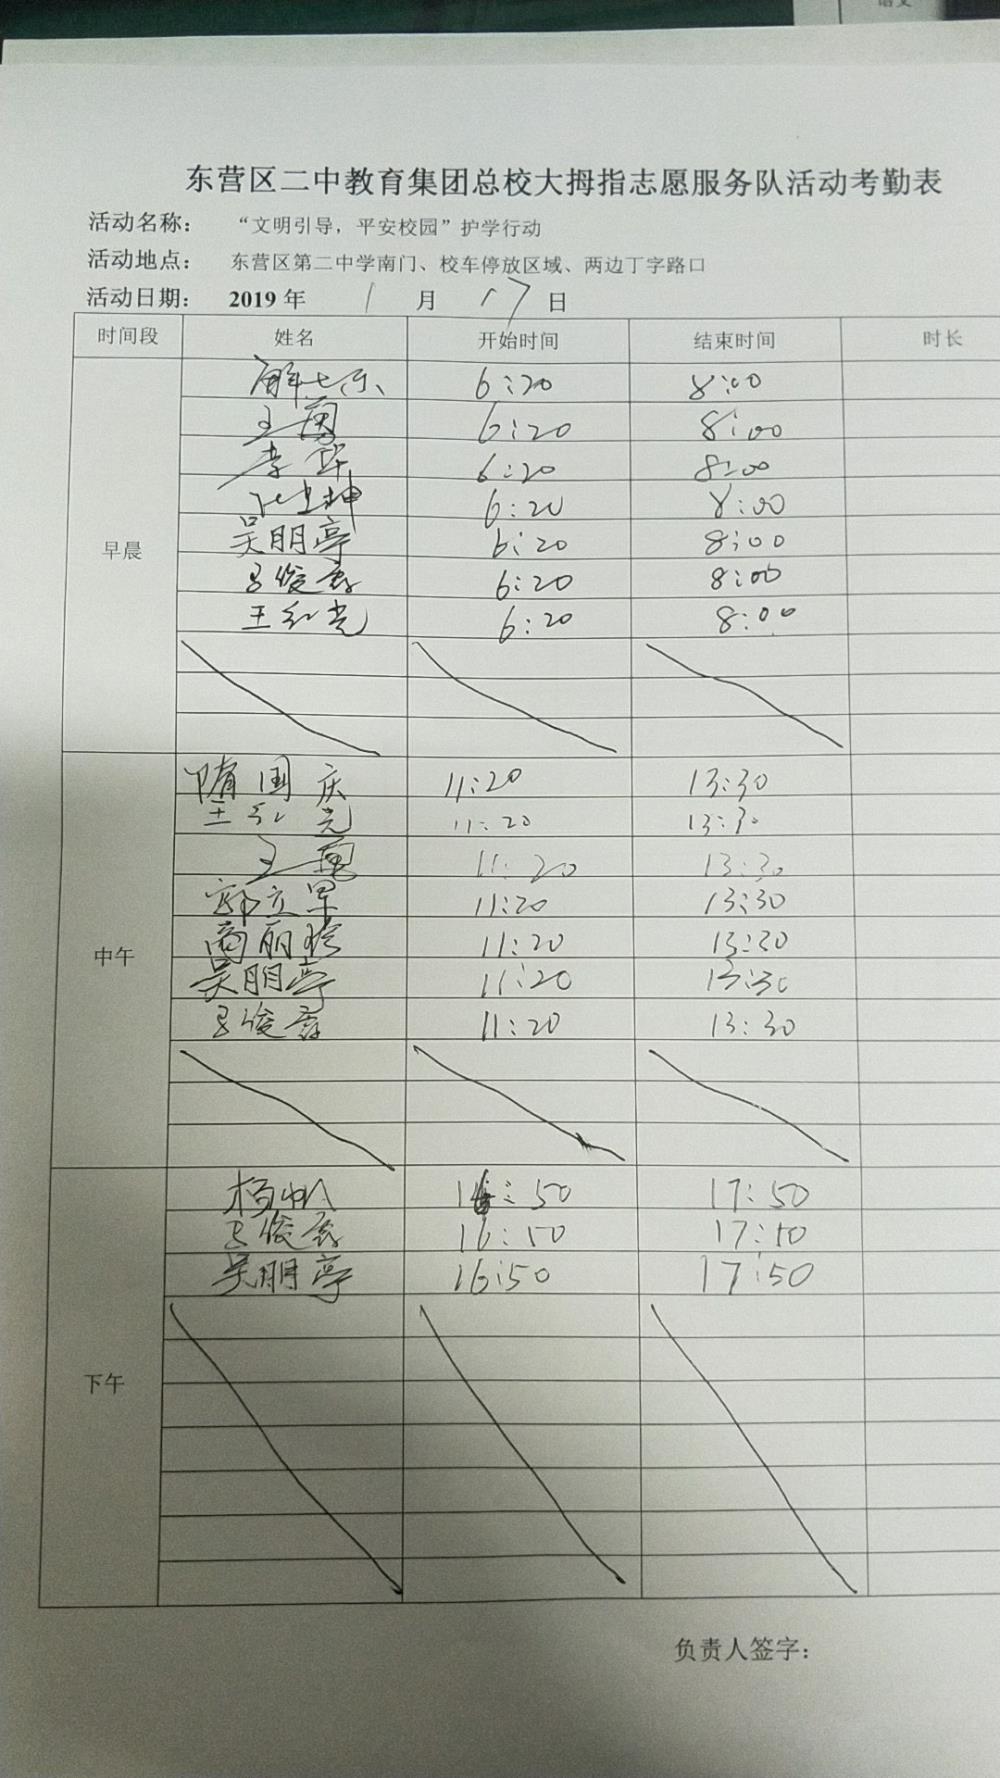 语文
东营区二中教育集团总校大拇指志愿服务队活动考勤表
活动名称： “文明引导，平安校园”护学行动
活动地点： 东营区第二中学南门、校车停放区域、两边丁字路口
活动日期： 2019 年 1 月 17 日
时间段 姓名 开始时间 结束时间 时长
6:20 8:00
王 6:20 8:00
李华 6:20 8:00
6:20 8:00
早晨 吴明亭 6:20 8:00
吕俊 6:20 8:00
王红光 6:20 8:00
隋国庆 11:20 13:30
王红光 11:20 13:30
王 11:20 13:30
郭立军 11:20 13:30
中午 商丽珍 11:20 13:30
吴明亭 11:20 13:30
吕俊 11:20 13:30
杨帆 16:50 17:50
吕俊 16:50 17:50
吴明亭 16:50 17:50
下午
负责人签字：